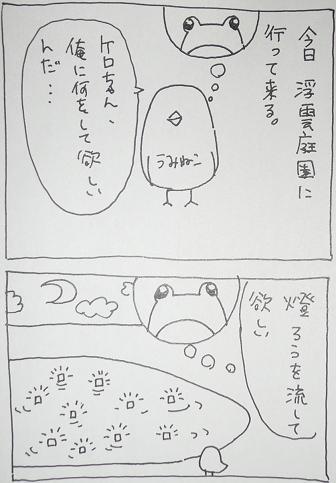 今日 浮雲庭園に
行って来る。
ケロちゃん、
俺に何をして欲しい
んだ…
うみねこ
燈ろうを流して
欲しい